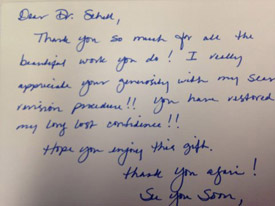 Dear Dr. Schell,
Thank you so much for all the
beautiful work you do! I really
appreciate your generosity with my scar
revision procedure!! You have restored
my long lost confidence!!
Hope you enjoy this gift.
Thank you again!
See you soon,